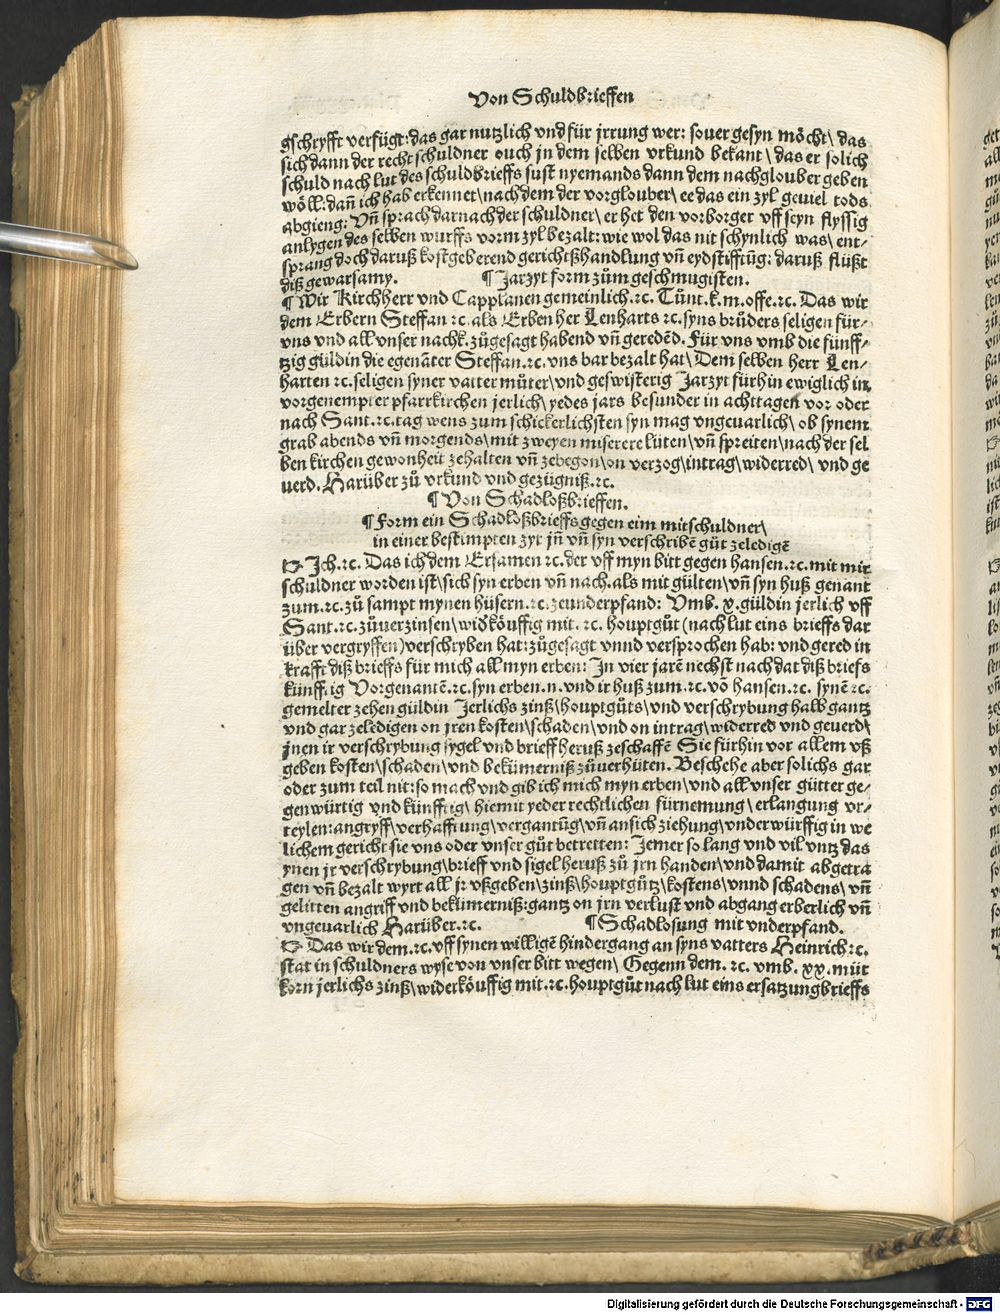 Von Schuldbrieffen
gschryfft verfügt: das gar nutzlich vnd für jrrung wer: souer gesyn möcht\ das
sich dann der recht schuldner ouch jn dem selben vrkund bekant \ das er solich
schuld nach lut des schuldbrieffs sust nyemands dann dem nachglouber geben
wöll: dañ ich hab erkennet\ nach dem der vorglouber\ ee das ein zyl geuiel tods
abgieng: Vñ sprach darnach der schuldner\ er het den vorborger vff seyn flyssig
anlygen des selben wurffs vorm zyl bezalt: wie wol das nit schynlich was\ ent-
sprang doch daruß kostgeberend gerichtßhandlung vñ eydstifftũg: daruß flüßt
diß gewarsamy. ¶ Jarzyt form zům geschmugisten.
¶ Wir Kirchherr vnd Capplanen gemeinlich.ꝛc. Tůnt.k.m.offe.ꝛc. Das wir
dem Erbern Steffan ꝛc. als Erben her Lenharts ꝛc. syns brůders seligen für-
vns vnd all vnser nachk. zůgesagt habend vñ geredẽd. Für vns vmb die fünff-
tzig güldin die egenãter Steffan.ꝛc. vns bar bezalt hat\ Dem selben herr Len-
harten ꝛc. seligen syner vatter můter\ vnd geswisterig Jarzyt fürhin ewiglich in
vorgenempter pfarrkirchen jerlich\ yedes jars besunder in achttagen vor oder
nach Sant.ꝛc.tag wens zum schickerlichsten syn mag vngeuarlich\ ob synem
grab abends vñ morgends\ mit zweyen miserere lüten\ vñ spreiten\ nach der sel
ben kirchen gewonheit zehalten vñ zebegon\ on verzog\ intrag\ widerred\ vnd ge
uerd. Harüber zů vrkund vnd gezügniß.ꝛc.
¶ Von Schadloßbrieffen.
¶ Form ein Schadloßbrieffs gegen eim mitschuldner\
in einer bestimpten zyt jñ vñ syn verschribẽ gůt zeledigẽ
Ich.ꝛc. Das ich dem Ersamen ꝛc. der vff myn bitt gegen hansen.ꝛc. mit mir
schuldner worden ist\ sich syn erben vñ nach. als mit gülten\ vñ syn huß genant
zum.ꝛc. zů sampt mynen hüsern.ꝛc. zeunderpfand: Vmb. x. güldin jerlich vff
Sant.ꝛc. zůuerzinsen\ widköuffig mit. ꝛc. houptgůt (nach lut eins brieffs dar
über vergryffen) verschryben hat: zůgesagt vnnd versprochen hab: vnd gered in
krafft diß brieffs für mich all myn erben: In vier jarẽ nechst nach dat diß briefs
künfftig Vorgenantẽ.ꝛc. syn erben.n. vnd ir huß zum.ꝛc. võ hansen.ꝛc. synẽ ꝛc.
gemelter zehen güldin Jerlichs zinß\ houptgůts\ vnd verschrybung halb gantz
vnd gar zeledigen on jren kosten\ schaden\ vnd on intrag\ widerred vnd geuerd\
jnen ir verschrybung sygel vnd brieff heruß zeschaffẽ Sie fürhin vor allem vß
geben kosten\ schaden\ vnd bekümerniß zůuerhüten. Beschehe aber solichs gar
oder zum teil nit: so mach vnd gib ich mich myn erben\ vnd all vnser gütter ge-
genwürtig vnd künfftig\ hiemit yeder rechtlichen fürnemung\ erlangung vr-
teylen: angryff\ verhafftung\ vergantũg\ vñ ansich ziehung\ vnderwürffig in we
lichem gericht sie vns oder vnser gůt betretten: Jemer so lang vnd vil vntz das
ynen jr verschrybung\ brieff vnd sigel heruß zů jrn handen\ vnd damit abgetra
gen vñ bezalt wyrt all jr vßgeben\ zinß\ houptgůtz\ kostens\ vnnd schadens\ vñ
gelitten angriff vnd bekümerniß: gantz on jrn verlust vnd abgang erberlich vñ
vngeuarlich Harüber.ꝛc. ¶ Schadlosung mit vnderpfand.
Das wir dem.ꝛc. vff synen willigẽ hindergang an syns vatters Heinrich ꝛc.
stat in schuldners wyse von vnser bitt wegen\ Gegenn dem. ꝛc. vmb. xx. müt
korn jerlichs zinß\ widerköuffig mit.ꝛc. houptgůt nach lut eins ersatzungbrieffs
Digitalisierung gefördert durch die Deutsche Forschungsgemeinschaft - DFG